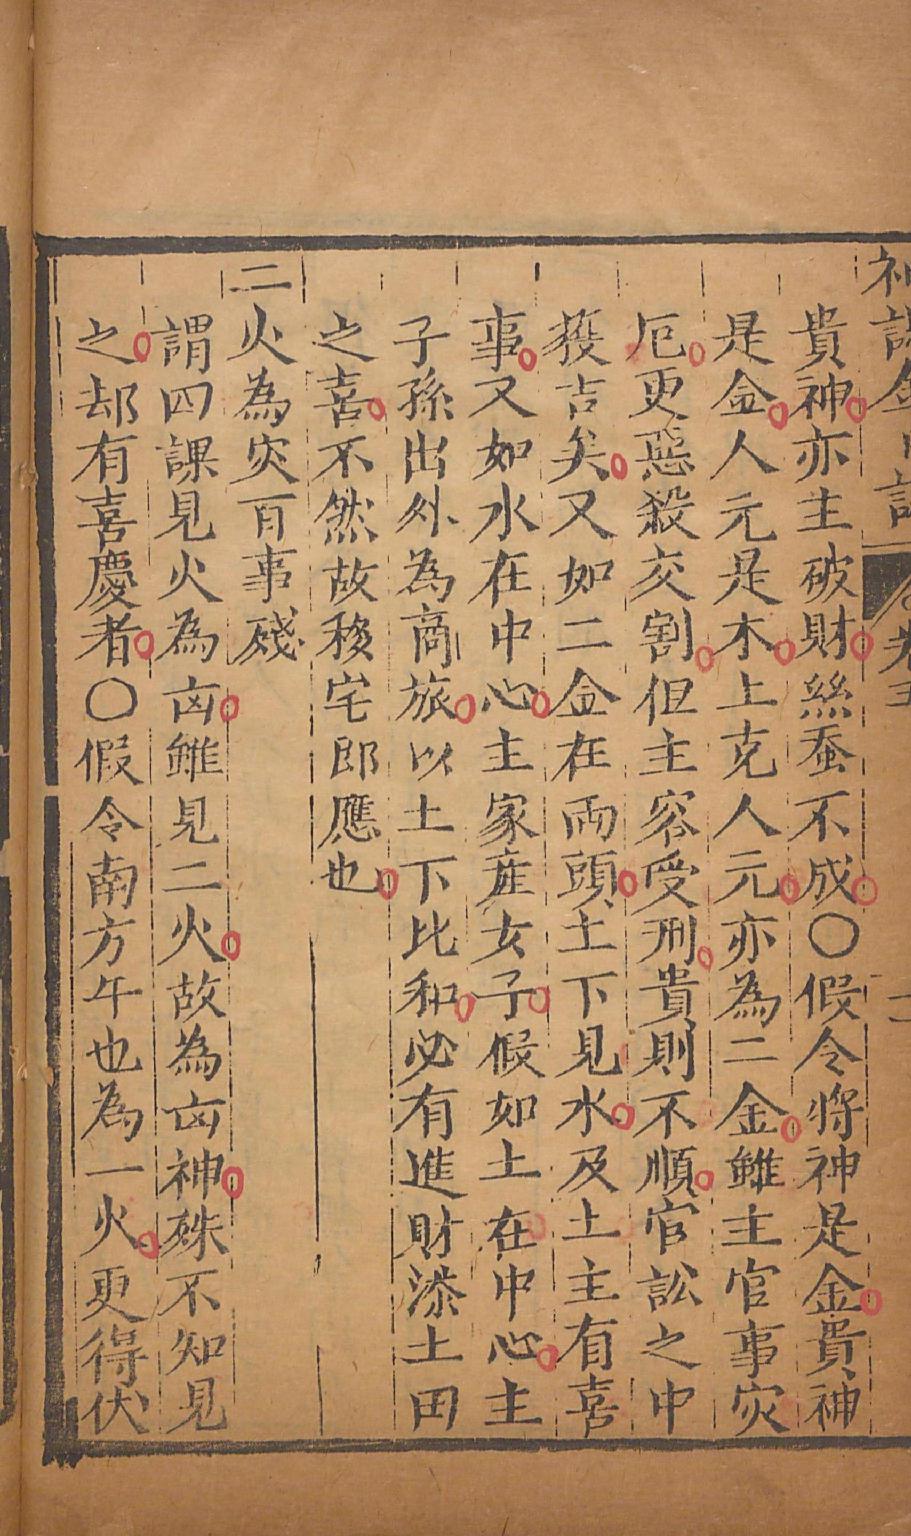 貴神亦主破財絲蚕不成〇假令將神是金貴神
是金人元是木上克人元亦為二金雖主官事灾
厄更惡殺交割但主容受刑貴則不順官訟之中
獲吉矣又如二金在兩頭土下見水及土主有喜
事又如水在中心主家産女子假如土在中心主
子孫出外為商旅以土下比和必有進財添土田
之喜不然故移宅郎應也
二火為灾百事殘
謂四課見火為㐫雖見二火故為㐫神殊不知見
之却有喜慶者〇假令南方午也為一火更得伏